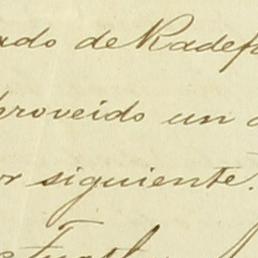 ado de Radef
proveido un a
or siguiente.